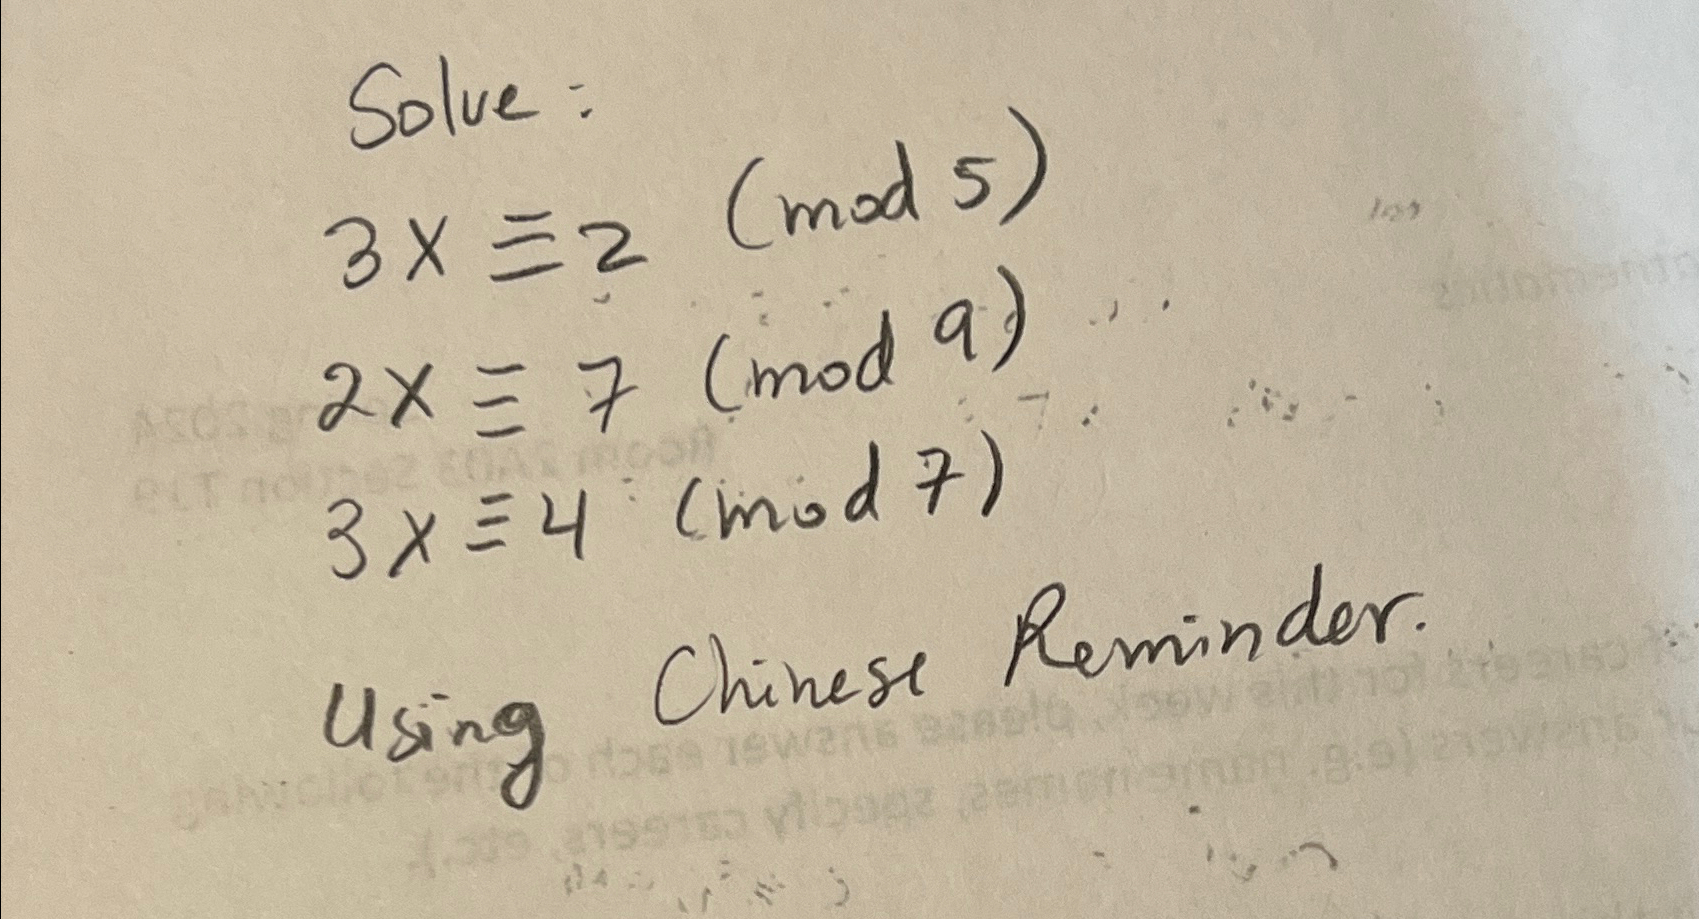 Solve:
3x ≡ 2 (mod 5)
2x ≡ 7 (mod 9)
3x ≡ 4 (mod 7)
Using Chinese Reminder.